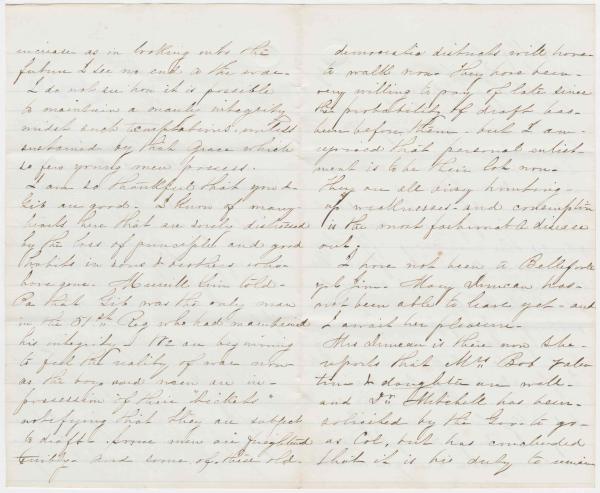 increase as in looking into the
future I see no end to the war.
I do not see how it is possible
to maintain a manly integrity
midst such temptations unless
sustained by that Grace which
so few young men possess.
I am so thankful that you &
Gib are good. I know of many
hearts here that are sorely distressed
by the loss of principle and good
habits in sons & brothers who
have gone. told
Pa that Gib was the only man
in the 51st Reg who had maintained
his integrity. We are beginning
to feel the reality of war now
as the boys and men are in
possession of their "tickets"
notifying that they are subject
to draft. Some men are frightened
and some of these old
democratic will have
to walk now. They have been
very willing to pay of late since
the probability of draft has
been before them - but I am
rejoiced that personal enlist-
ment is to be their lot now.
They are all busy hunting
up weaknesses - and consumption
is the most fashionable disease
out;
I have not been to Bellefonte
yet Jim. Mary Duncan has
not been able to leave yet - and
I await her pleasure.
Mrs Duncan is there now she
reports that Mrs Bob Valen
tine & daughter are well
and Dr Mitchell has been
solicited by the Gov. to go
as Col, but has concluded
that it is his duty to